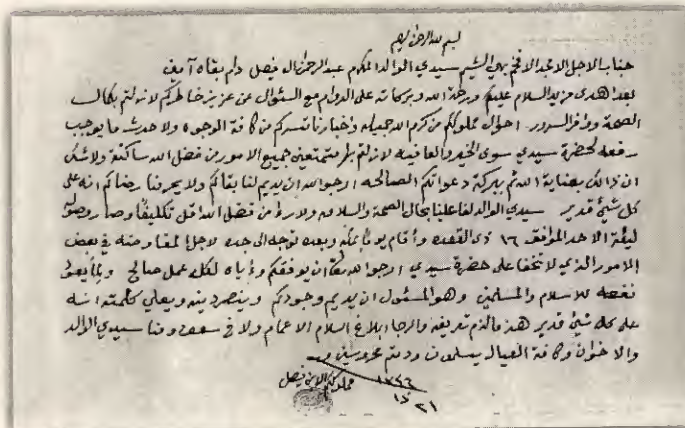 بسم الله الرحمن الرحيم
جناب الاجل الامجد الافخم بهي الشيم سيدي الوالد المكرم عبدالرحمن ال فيصل دام بقاه آمين
بعد اهدى مزيد السلام عليكم ورحمة الله وبركاته على الدوام مع السئوال عن عزيز خاطركم لازلتم بكمال
الصحة ووافر السرور احوال مملوككم من كرم الله جميله واخبارنا تسركم من كافة الوجوه ولا حدث ما يوجب
رفعه لحضرة سيدي سوى الخير والعافيه لازلتم بهم متمتعين جميع الامور من فضل الله ساكنة ولا شك
ان ذالك بعناية الله ثم ببركة دعواتكم الصالحه ارجو الله ان يديم لنا بقاكم ولا يحرمنا رضاكم انه على
كل شيئ قدير سيدي الوالد لفا علينا بحال الصحة والسلامه ولا رؤ من فضل الله اقل تكليف وصار وصوله
ليلة الاحد الموافق ١٦ ذي القعده وأقام يوما بمكه وبعده توجه الى جده لاجل المفاوضه في بعض
الامور الذي لا تخفا على حضرة سيدي ارجو الله تعالى ان يوفقكم وأياه لكل عمل صالح ولما يعود
نفعه للاسلام والمسلمين وهو المسئول ان يديم وجودكم وينصر دينه ويعلي كلمته انه
على كل شيئ قدير هذا مالزم تعريفه والرجا ابلاغ السلام الاعمام ومنا سيدي الوالد
والاخوان وكافة العيال يسلمون ودمتم محروسين
١٣٤٦
١٧ ٢١
مملوككم الابن فيصل